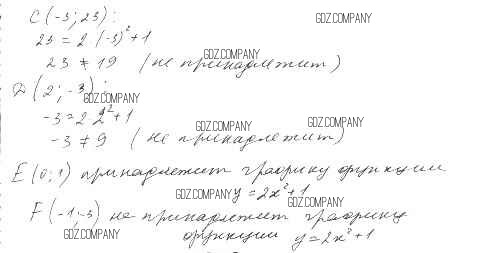 C(-3; 23):
GDZ.COMPANY
23 = 2(-3)²+1
GDZ.COMPANY
23 ≠ 19 (не принадлежит)
D(2; -3):
GDZ.COMPANY
-3 = 2 2²+1
GDZ.COMPANY GDZ.COMPANY
-3 ≠ 9 (не принадлежит)
E(0; 1) принадлежит графику функции
GDZ.COMPANY y = 2x²+1
GDZ.COMPANY
F(-1; -3) не принадлежит графику
GDZ.COMPANY функции y = 2x²+1